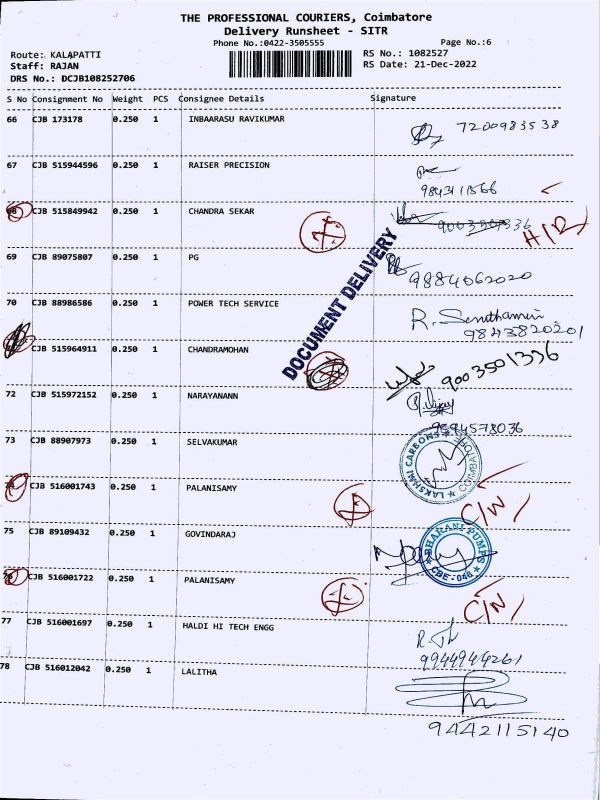 THE PROFESSIONAL COURIERS, Coimbatore
Delivery Runsheet - SITR
Phone No.:0422-3505555 Page No.:6
Route: KALAPATTI RS No.: 1082527
Staff: RAJAN RS Date: 21-Dec-2022
DRS No.: DCJB108252706
S No Consignment No Weight PCS Consignee Details Signature
66 CJB 173178 0.250 1 INBAARASU RAVIKUMAR 7200983538
67 CJB 515944596 0.250 1 RAISER PRECISION
9843111566
68 CJB 515849942 0.250 1 CHANDRA SEKAR
69 CJB 89075807 0.250 1 PG 9884062020
DOCUMENT DELIVERY
70 CJB 88986586 0.250 1 POWER TECH SERVICE R.
9843820201
CJB 515964911 0.250 1 CHANDRAMOHAN 9003501336
72 CJB 515972152 0.250 1 NARAYANANN
9594578036
73 CJB 88907973 0.250 1 SELVAKUMAR
LAKSHMI CARBONS COIMBATORE
74 CJB 516001743 0.250 1 PALANISAMY C/N
75 CJB 89109432 0.250 1 GOVINDARAJ
BHARANI PUMPS
CBE - 048
76 CJB 516001722 0.250 1 PALANISAMY C/N
77 CJB 516001697 0.250 1 HALDI HI TECH ENGG
9944944261
78 CJB 516012042 0.250 1 LALITHA
9442115140